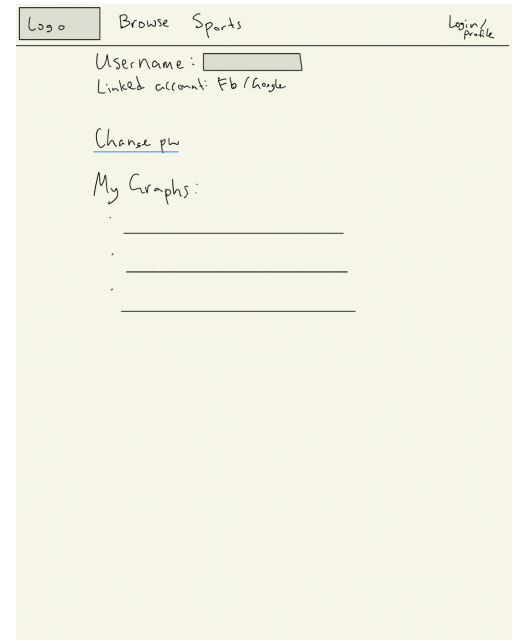 Logo Browse Sports Login/
Profile
Username:
Linked account: Fb/Google
Change pw
My Graphs: